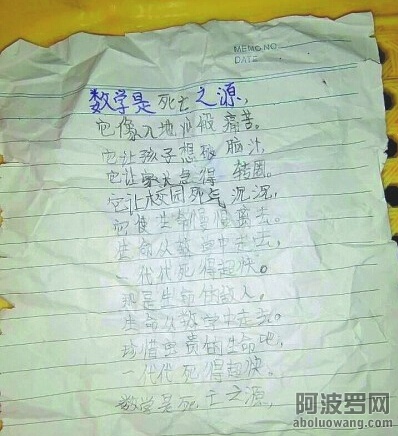 MEMO.NO
DATE
数学是死亡之源,
它像入地狱般痛苦。
它让孩子想破脑汁,
它让家长急得转圈。
它让校园死气沉沉,
它使生命慢慢离去。
生命从数学中走去,
一代代死得超快。
那是生命的敌人,
生命从数学中走去。
珍惜宝贵的生命吧,
一代代死得超快。
数学是死亡之源,
阿波罗网
aboluowang.com